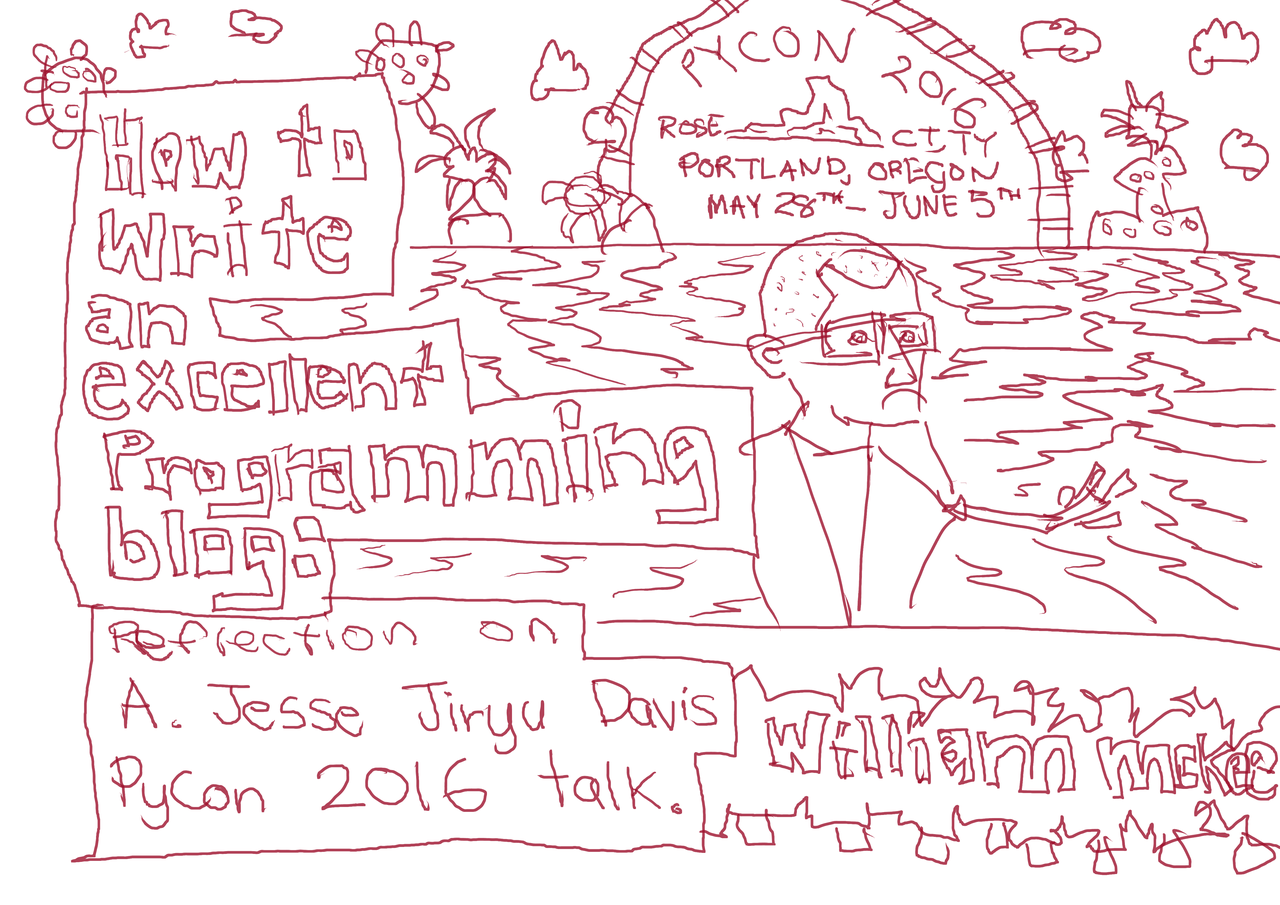 How to
Write
an
excellent
Programming
blog:
Reflection on
A. Jesse Jiryu Davis
PyCon 2016 talk.
PYCON 2016
ROSE CITY
PORTLAND, OREGON
MAY 28TH - JUNE 5TH
William mckee